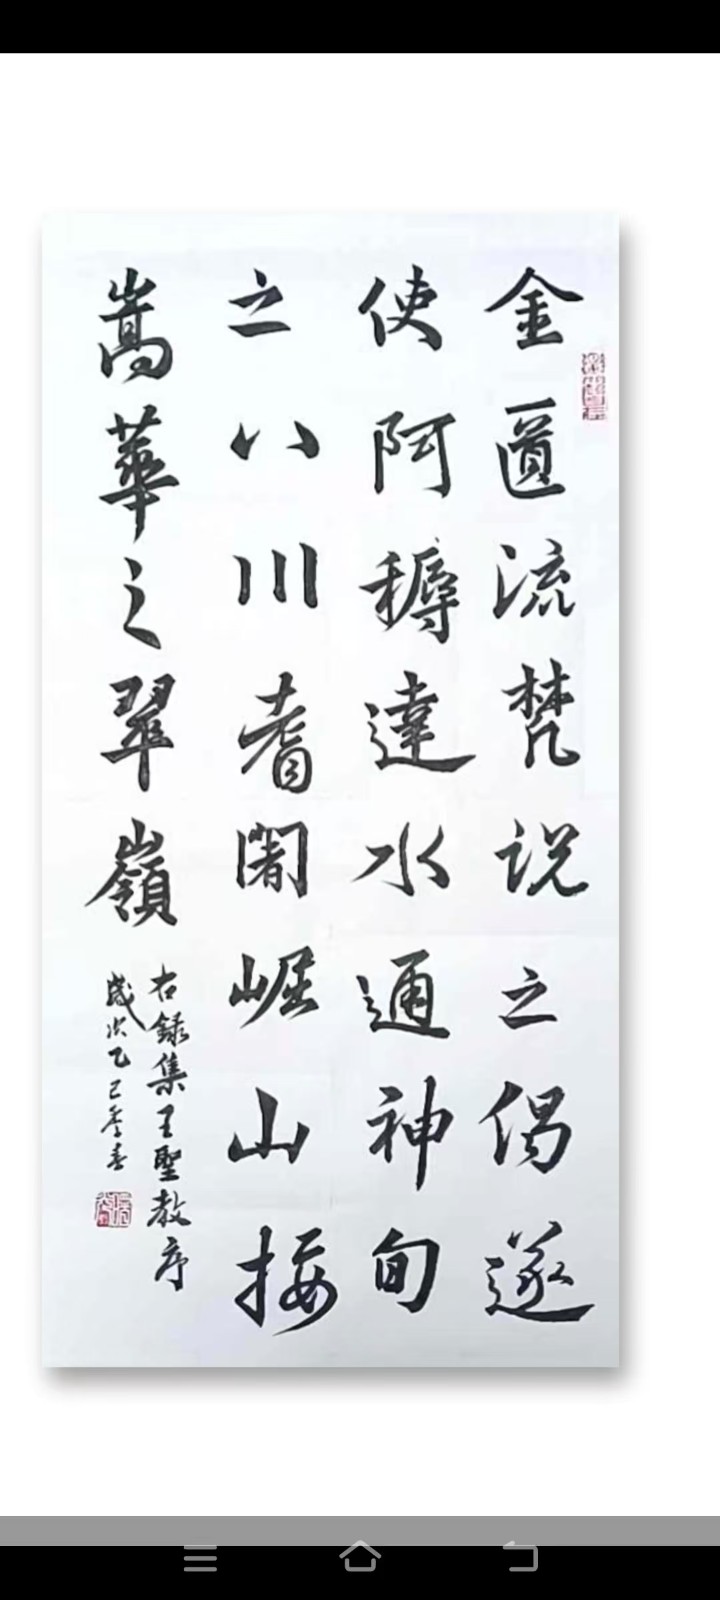 金匱流梵説之偈遂
使阿耨達水通神甸
之八川耆闍崛山接
嵩華之翠嶺
右録集王聖教序
歲次乙巳季春